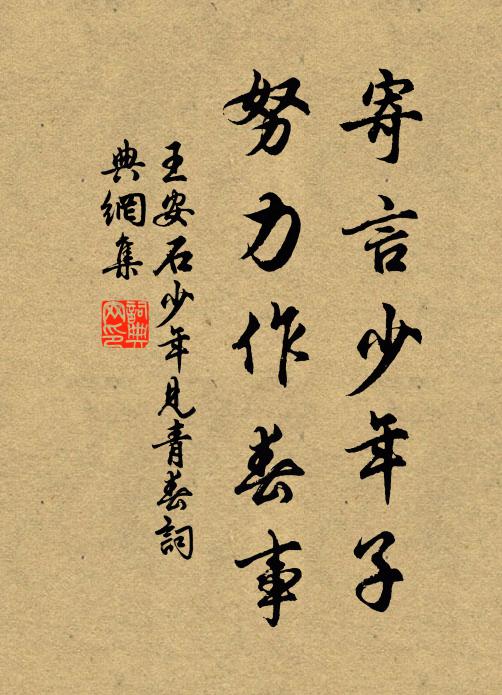 寄言少年子
努力作春事
王安石少年見青春詞
典網集
詞典网印